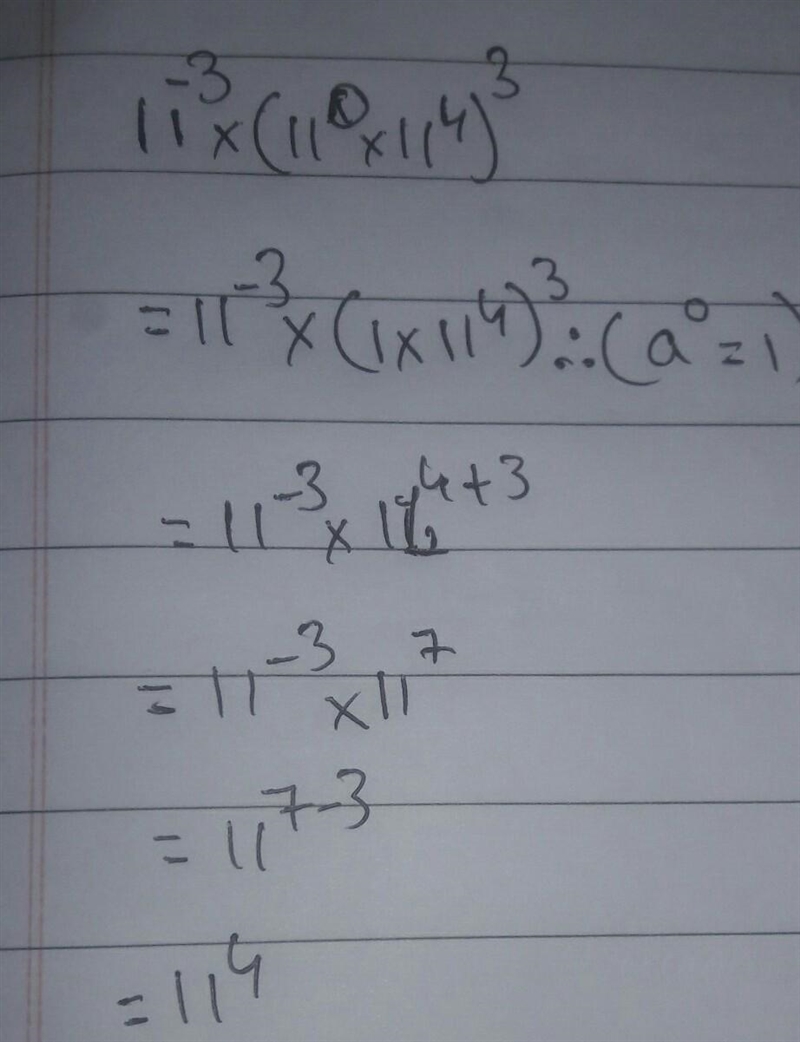 11⁻³×(11⁰×11⁴)³
=11⁻³×(1×11⁴)³∴(a⁰=1)
=11⁻³×11⁴⁺³
=11⁻³×11⁷
=11⁷⁻³
=11⁴